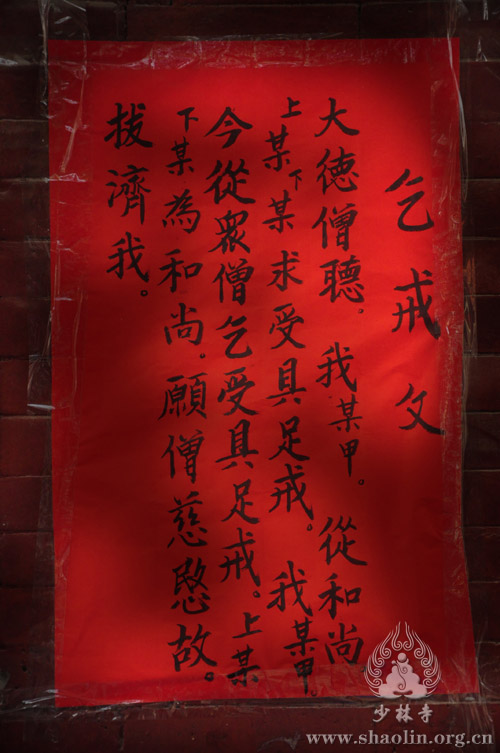 乞戒文
大德僧聽。我某甲。從和尚
上某下某求受具足戒。我某甲。
今從眾僧乞受具足戒。上某
下某為和尚。願僧慈愍故。
拔濟我。
少林寺
www.shaolin.org.cn